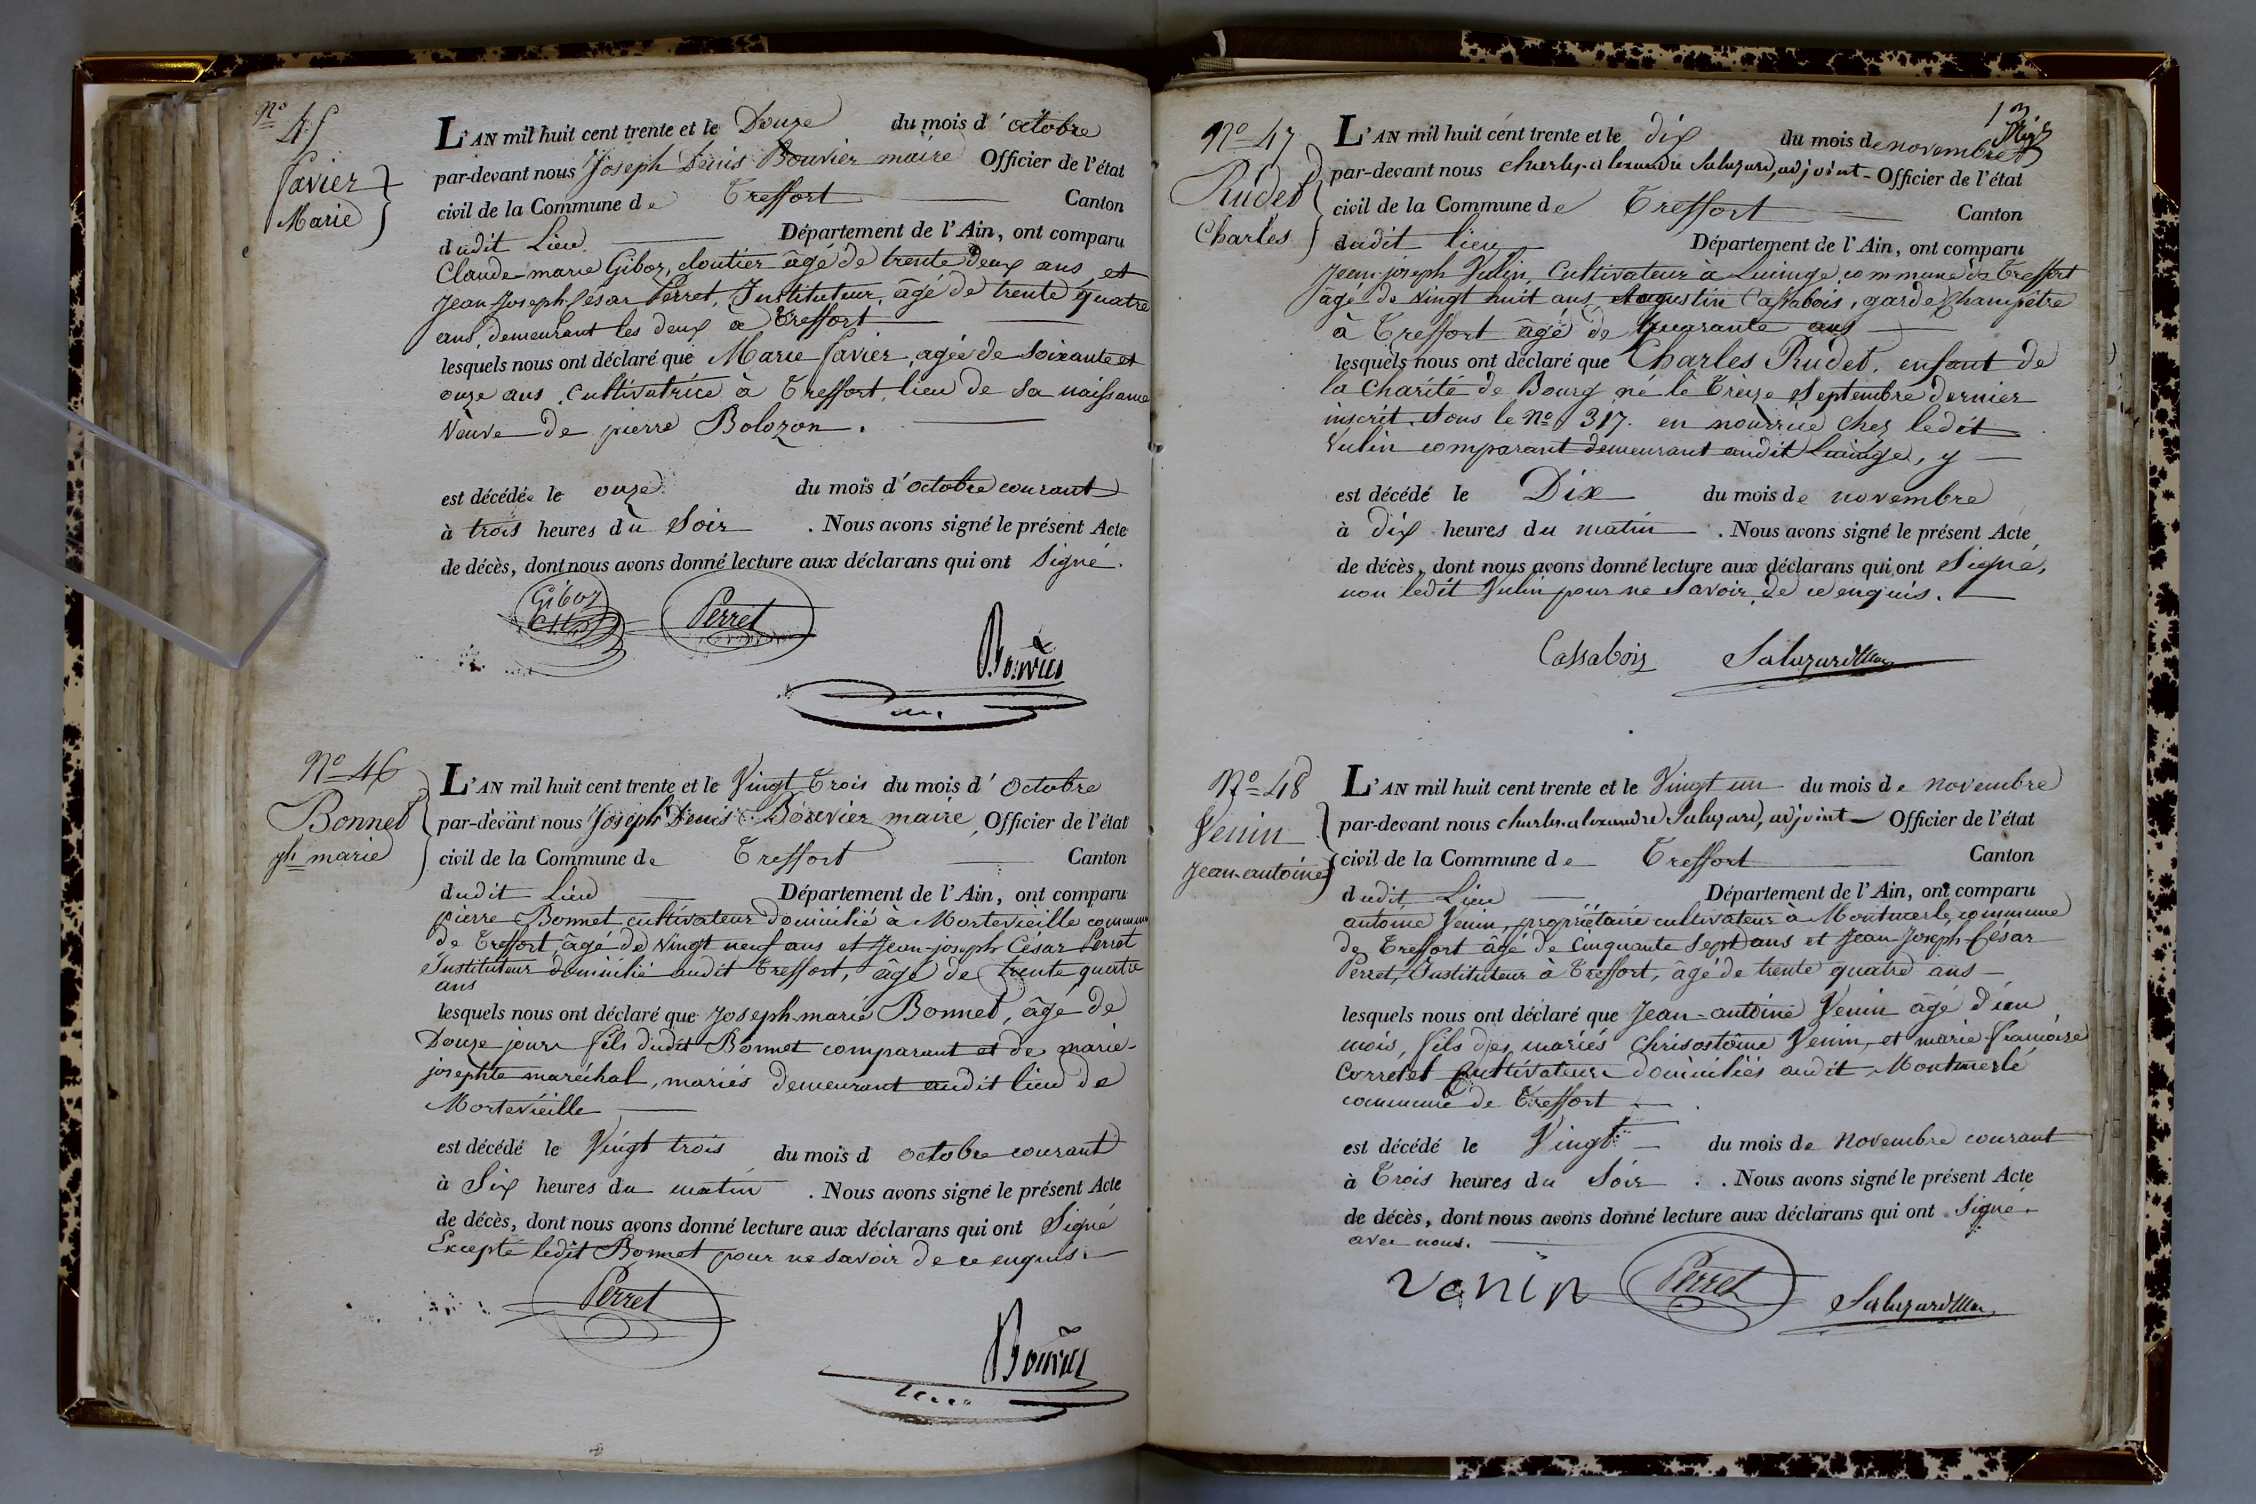 Nº 45
Favier
Marie
L'AN mil huit cent trente et le Douze du mois d'octobre
par-devant nous Joseph Denis Bouvier maire Officier de l'état
civil de la Commune de Treffort Canton
dudit Lieu Département de l'Ain, ont comparu
Claude-marie Giboz, cloutier âgé de trente deux ans et
Jean Joseph César Perret, Instituteur, âgé de trente quatre
ans, demeurant les deux à Treffort
lesquels nous ont déclaré que Marie Favier, agée de soixante et
onze ans, Cultivatrice à Treffort, lieu de sa naissance
Veuve de pierre Bolozon.
est décédée le onze du mois d'octobre courant
à trois heures du Soir. Nous avons signé le présent Acte
de décès, dont nous avons donné lecture aux déclarans qui ont signé.
Giboz Perret
Bouvier
Nº 46
Bonnet
jph marie
L'AN mil huit cent trente et le Vingt Trois du mois d'Octobre
par-devant nous Joseph Denis Bouvier maire Officier de l'état
civil de la Commune de Treffort Canton
dudit Lieu Département de l'Ain, ont comparu
pierre Bonnet cultivateur domicilié à Mortevieille commune
de Treffort, âgé de vingt neuf ans et Jean-joseph César Perret
Instituteur domicilié audit Treffort, âgé de trente quatre
ans
lesquels nous ont déclaré que Joseph-marie Bonnet, âgé de
Douze jours fils dudit Bonnet comparant et de marie-
josephte maréchal, mariés demeurant audit lieu de
Mortevieille
est décédé le Vingt trois du mois d octobre courant
à Six heures du matin. Nous avons signé le présent Acte
de décès, dont nous avons donné lecture aux déclarans qui ont Signé
Excepté ledit Bonnet pour ne savoir de ce enquis.
Perret
Bouvier
13
Nº 47
Rudet
Charles
L'AN mil huit cent trente et le dix du mois de novembre
par-devant nous charles-alexandre Saluzard, adjoint Officier de l'état
civil de la Commune de Treffort Canton
dudit lieu Département de l'Ain, ont comparu
Jean-joseph Vulin, Cultivateur à Lucinge commune de Treffort
âgé de vingt huit ans, et augustin Cassabois, garde Champêtre
à Treffort âgé de quarante ans
lesquels nous ont déclaré que Charles Rudet, enfant de
la Charité de Bourg né le Treize Septembre dernier
inscrit sous le Nº 317. en nourrice chez ledit
Vulin comparant demeurant audit Lucinge, y
est décédé le Dix du mois de novembre
à dix heures du matin. Nous avons signé le présent Acte
de décès, dont nous avons donné lecture aux déclarans qui ont Signé,
non ledit Vulin pour ne savoir, de ce enquis.
Cassabois Saluzard
Nº 48
Venin
Jean-antoine
L'AN mil huit cent trente et le Vingt un du mois de novembre
par-devant nous charles-alexandre Saluzard, adjoint Officier de l'état
civil de la Commune de Treffort Canton
dudit Lieu Département de l'Ain, ont comparu
antoine Venin, propriétaire cultivateur à Montmerle, commune
de Treffort âgé de Cinquante Sept ans et Jean-Joseph César
Perret, Instituteur à Treffort, âgé de trente quatre ans
lesquels nous ont déclaré que Jean-antoine Venin âgé d'un
mois, fils des mariés Chrisostôme Venin, et marie françoise
Corretel Cultivateurs domiciliés audit Montmerle
commune de Treffort
est décédé le Vingt du mois de novembre courant
à Trois heures du Soir. Nous avons signé le présent Acte
de décès, dont nous avons donné lecture aux déclarans qui ont signé.
avec nous.
Venin Perret Saluzard